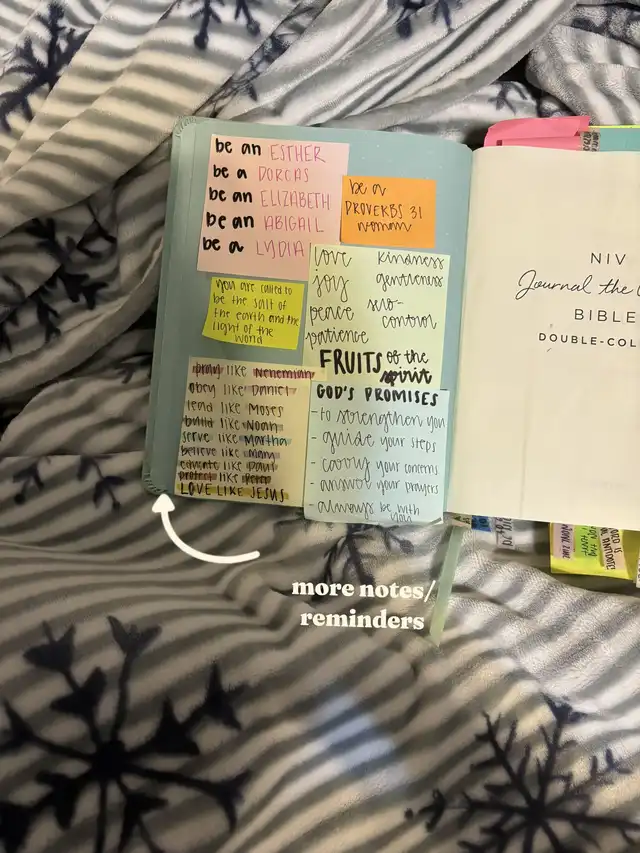 be an ESTHER
be a DORCAS
be an ELIZABETH
be an ABIGAIL
be a LYDIA
be a
PROVERBS 31
woman
you are called to
be the salt of
the earth and the
light of the
world
love kindness
joy gentleness
peace self-
control
patience
FRUITS of the
spirit
pray like Nehemiah
obey like Daniel
lead like Moses
build like Noah
serve like Martha
believe like Mary
educate like Paul
protect like Peter
LOVE LIKE JESUS
GOD'S PROMISES
- to strengthen you
- guide your steps
- carry your concerns
- answer your prayers
- always be with
you
NIV
Journal the
BIBLE
DOUBLE-COL
more notes/
reminders